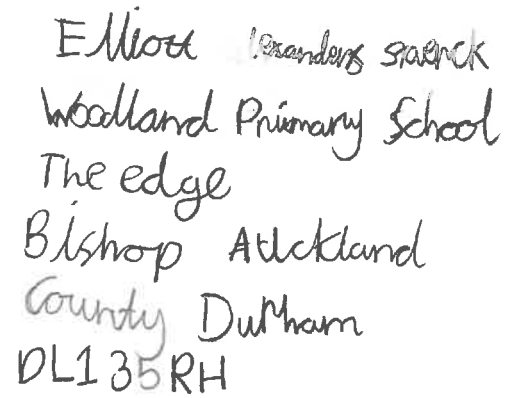 Elliott
Woodland Primary School
The edge
Bishop Auckland
County Durham
DL13 5RH